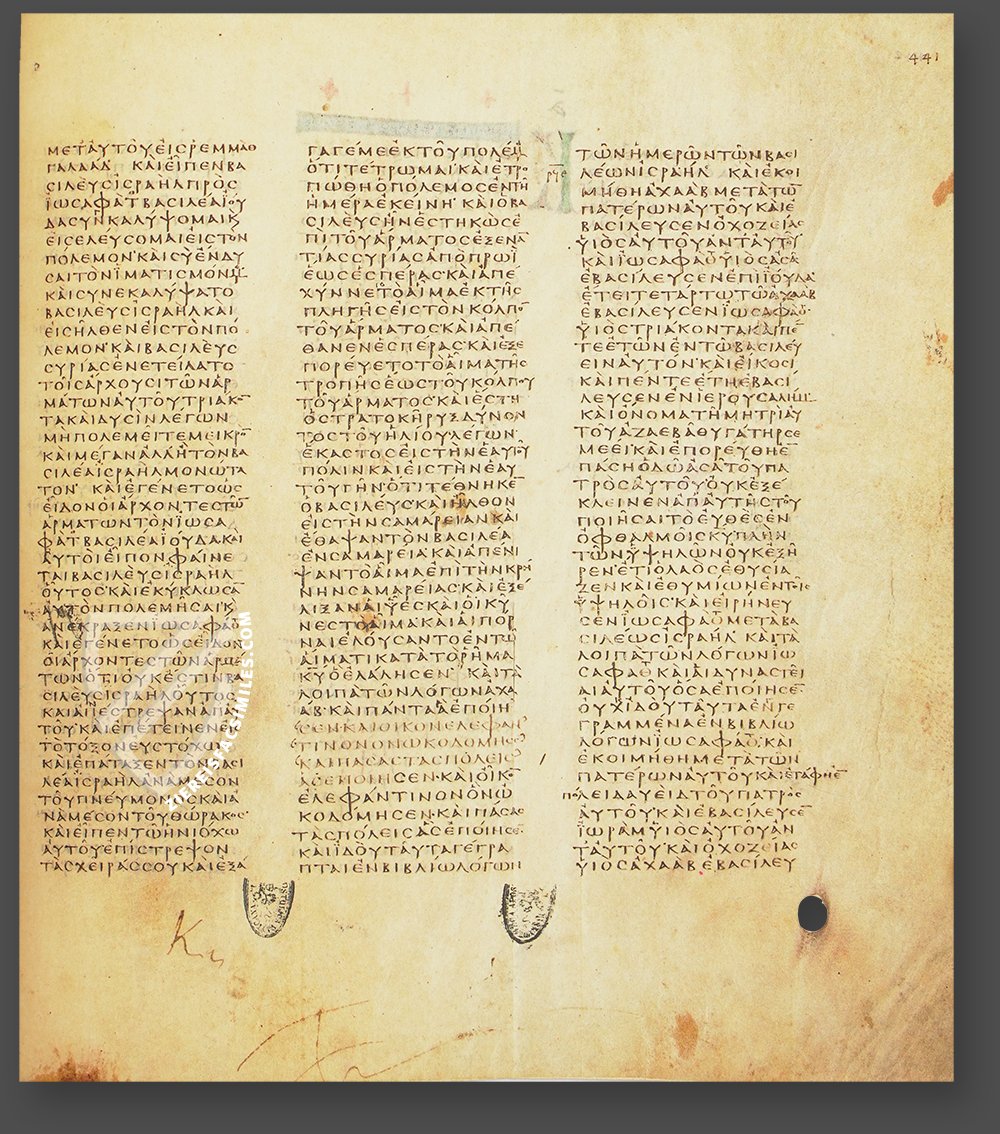 441
ΜΕΤΑΥΤΟΥΕΙΣΡΕΜΜΑΘ
ΓΑΛΑΑΔ ΚΑΙΕΙΠΕΝΒΑ
ΣΙΛΕΥΣΙΣΡΑΗΛΠΡΟΣ
ΙΩΣΑΦΑΤΒΑΣΙΛΕΑΙΟΥ
ΔΑΣΥΝΚΑΛΥΨΟΜΑΙΚ
ΕΙΣΕΛΕΥΣΟΜΑΙΕΙΣΤΟΝ
ΠΟΛΕΜΟΝΚΑΙΣΥΕΝΔΥ
ΣΑΙΤΟΝΙΜΑΤΙΣΜΟΝΜΟΥ
ΚΑΙΣΥΝΕΚΑΛΥΨΑΤΟ
ΒΑΣΙΛΕΥΣΙΣΡΑΗΛΚΑΙ
ΕΙΣΗΛΘΕΝΕΙΣΤΟΝΠΟ
ΛΕΜΟΝΚΑΙΒΑΣΙΛΕΥΣ
ΣΥΡΙΑΣΕΝΕΤΕΙΛΑΤΟ
ΤΟΙΣΑΡΧΟΥΣΙΤΩΝΑΡ
ΜΑΤΩΝΑΥΤΟΥΤΡΙΑΚΟ̅
ΤΑΚΑΙΔΥΣΙΝΛΕΓΩΝ
ΜΗΠΟΛΕΜΕΙΤΕΜΕΙΚΡΟ̅
ΚΑΙΜΕΓΑΝΑΛΛΗΤΟΝΒΑ
ΣΙΛΕΑΙΣΡΑΗΛΜΟΝΩΤΑ
ΤΟΝ ΚΑΙΕΓΕΝΕΤΟΩΣ
ΕΙΔΟΝΟΙΑΡΧΟΝΤΕΣΤΩ̅
ΑΡΜΑΤΩΝΤΟΝΙΩΣΑ
ΦΑΤΒΑΣΙΛΕΑΙΟΥΔΑΚΑΙ
ΑΥΤΟΙΕΙΠΟΝΦΑΙΝΕ
ΤΑΙΒΑΣΙΛΕΥΣΙΣΡΑΗΛ
ΟΥΤΟΣΚΑΙΕΚΥΚΛΩΣΑ
ΑΥΤΟΝΠΟΛΕΜΗΣΑΙΚ
ΑΝΕΚΡΑΞΕΝΙΩΣΑΦΑΘ
ΚΑΙΕΓΕΝΕΤΟΩΣΕΙΔΟΝ
ΟΙΑΡΧΟΝΤΕΣΤΩΝΑΡΜΑ
ΤΩΝΟΤΙΟΥΚΕΣΤΙΝΒΑ
ΣΙΛΕΥΣΙΣΡΑΗΛΟΥΤΟΣ
ΚΑΙΑΠΕΣΤΡΕΨΑΝΑΠΑΥ
ΤΟΥΚΑΙΕΠΕΤΕΙΝΕΝΕΙΣ
ΤΟΤΟΞΟΝΕΥΣΤΟΧΩΣ
ΚΑΙΕΠΑΤΑΞΕΝΤΟΝΒΑΣΙ
ΛΕΑΙΣΡΑΗΛΑΝΑΜΕΣΟΝ
ΤΟΥΠΝΕΥΜΟΝΟΣΚΑΙΑ
ΝΑΜΕΣΟΝΤΟΥΘΩΡΑΚΟΣ
ΚΑΙΕΙΠΕΝΤΩΗΝΙΟΧΩ
ΑΥΤΟΥΕΠΙΣΤΡΕΨΟΝ
ΤΑΣΧΕΙΡΑΣΣΟΥΚΑΙΕΞΑ
ΓΑΓΕΜΕΕΚΤΟΥΠΟΛΕΜΟΥ
ΟΤΙΤΕΤΡΩΜΑΙΚΑΙΕΤΡΟ
ΠΩΘΗΟΠΟΛΕΜΟΣΕΝΤΗ
ΗΜΕΡΑΕΚΕΙΝΗΚΑΙΟΒΑ
ΣΙΛΕΥΣΗΝΕΣΤΗΚΩΣΕ
ΠΙΤΟΥΑΡΜΑΤΟΣΕΞΕΝΑ̅
ΤΙΑΣΣΥΡΙΑΣΑΠΟΠΡΩΙ
ΕΩΣΕΣΠΕΡΑΣΚΑΙΑΠΕ
ΧΥΝΝΕΤΟΑΙΜΑΕΚΤΗΣ
ΠΛΗΓΗΣΕΙΣΤΟΝΚΟΛΠΟ̅
ΤΟΥΑΡΜΑΤΟΣΚΑΙΑΠΕ
ΘΑΝΕΝΕΣΠΕΡΑΣΚΑΙΕΞΕ
ΠΟΡΕΥΕΤΟΤΟΑΙΜΑΤΗΣ
ΤΡΟΠΗΣΕΩΣΤΟΥΚΟΛΠΟΥ
ΤΟΥΑΡΜΑΤΟΣΚΑΙΕΣΤΗ
ΟΣΤΡΑΤΟΚΗΡΥΞΔΥΝΟΝ
ΤΟΣΤΟΥΗΛΙΟΥΛΕΓΩΝ
ΕΚΑΣΤΟΣΕΙΣΤΗΝΕΑΥΤΟΥ
ΠΟΛΙΝΚΑΙΕΙΣΤΗΝΕΑΥ
ΤΟΥΓΗΝΟΤΙΤΕΘΝΗΚΕ̅
ΟΒΑΣΙΛΕΥΣΚΑΙΗΛΘΟΝ
ΕΙΣΤΗΝΣΑΜΑΡΕΙΑΝΚΑΙ
ΕΘΑΨΑΝΤΟΝΒΑΣΙΛΕΑ
ΕΝΣΑΜΑΡΕΙΑΚΑΙΑΠΕΝΙ
ΨΑΝΤΟΑΙΜΑΕΠΙΤΗΝΚΡΗ
ΝΗΝΣΑΜΑΡΕΙΑΣΚΑΙΕΞΕ
ΛΙΞΑΝΑΙΥΕΣΚΑΙΟΙΚΥ
ΝΕΣΤΟΑΙΜΑΚΑΙΑΙΠΟΡ
ΝΑΙΕΛΟΥΣΑΝΤΟΕΝΤΩ
ΑΙΜΑΤΙΚΑΤΑΤΟΡΗΜΑ
ΚΥΟΕΛΑΛΗΣΕΝ ΚΑΙΤΑ
ΛΟΙΠΑΤΩΝΛΟΓΩΝΑΧΑ
ΑΒΚΑΙΠΑΝΤΑΑΕΠΟΙΗ
ΣΕΝΚΑΙΟΙΚΟΝΕΛΕΦΑΝ
ΤΙΝΟΝΟΝΩΚΟΔΟΜΗΣΕ
ΚΑΙΠΑΣΑΣΤΑΣΠΟΛΕΙΣ
ΑΣΕΠΟΙΗΣΕΝΚΑΙΟΙΚΟ̅
ΕΛΕΦΑΝΤΙΝΟΝΟΝΩ
ΚΟΔΟΜΗΣΕΝΚΑΙΠΑΣΑΣ
ΤΑΣΠΟΛΕΙΣΑΣΕΠΟΙΗΣΕ
ΚΑΙΙΔΟΥΤΑΥΤΑΓΕΓΡΑ
ΠΤΑΙΕΝΒΙΒΛΙΩΛΟΓΩΝ
ΤΩΝΗΜΕΡΩΝΤΩΝΒΑΣΙ
ΛΕΩΝΙΣΡΑΗΛ ΚΑΙΕΚΟΙ
ΜΗΘΗΑΧΑΑΒΜΕΤΑΤΩ̅
ΠΑΤΕΡΩΝΑΥΤΟΥΚΑΙΕ
ΒΑΣΙΛΕΥΣΕΝΟΧΟΖΕΙΑΣ
ΥΙΟΣΑΥΤΟΥΑΝΤΑΥΤΟΥ
ΚΑΙΙΩΣΑΦΑΘΥΙΟΣΑΣΑ
ΕΒΑΣΙΛΕΥΣΕΝΕΠΙΙΟΥΔΑ
ΕΤΕΙΤΕΤΑΡΤΩΤΩΑΧΑΑΒ
ΕΒΑΣΙΛΕΥΣΕΝΙΩΣΑΦΑΘ
ΥΙΟΣΤΡΙΑΚΟΝΤΑΚΑΙΠΕ̅
ΤΕΕΤΩΝΕΝΤΩΒΑΣΙΛΕΥ
ΕΙΝΑΥΤΟΝΚΑΙΕΙΚΟΣΙ
ΚΑΙΠΕΝΤΕΕΤΗΕΒΑΣΙ
ΛΕΥΣΕΝΕΝΙΕΡΟΥΣΑΛΗΜ
ΚΑΙΟΝΟΜΑΤΗΜΗΤΡΙΑΥ
ΤΟΥΑΖΑΕΒΑΘΥΓΑΤΗΡΣΕ
ΜΕΕΙΚΑΙΕΠΟΡΕΥΘΗΕ̅
ΠΑΣΗΟΔΩΑΣΑΤΟΥΠΑ
ΤΡΟΣΑΥΤΟΥΟΥΚΕΞΕ
ΚΛΕΙΝΕΝΑΠΑΥΤΗΣΤΟΥ
ΠΟΙΗΣΑΙΤΟΕΥΘΕΣΕΝ
ΟΦΘΑΛΜΟΙΣΚΥΠΛΗΝ
ΤΩΝΥΨΗΛΩΝΟΥΚΕΞΗ
ΡΕΝΕΤΙΟΛΑΟΣΕΘΥΣΙΑ
ΖΕΝΚΑΙΕΘΥΜΙΩΝΕΝΤΟΙΣ
ΥΨΗΛΟΙΣΚΑΙΕΙΡΗΝΕΥ
ΣΕΝΙΩΣΑΦΑΘΜΕΤΑΒΑ
ΣΙΛΕΩΣΙΣΡΑΗΛ ΚΑΙΤΑ
ΛΟΙΠΑΤΩΝΛΟΓΩΝΙΩ
ΣΑΦΑΘΚΑΙΑΙΔΥΝΑΣΤΕΙ
ΑΙΑΥΤΟΥΟΣΑΕΠΟΙΗΣΕ̅
ΟΥΧΙΔΟΥΤΑΥΤΑΕΝΓΕ
ΓΡΑΜΜΕΝΑΕΝΒΙΒΛΙΩ
ΛΟΓΩΝΙΩΣΑΦΑΘΚΑΙ
ΕΚΟΙΜΗΘΗΜΕΤΑΤΩΝ
ΠΑΤΕΡΩΝΑΥΤΟΥΚΑΙΕΤΑΦΗΕ̅
ΠΟΛΕΙΔΑΥΕΙΔΤΟΥΠΑΤΡΟΣ
ΑΥΤΟΥΚΑΙΕΒΑΣΙΛΕΥΣΕ̅
ΙΩΡΑΜΥΙΟΣΑΥΤΟΥΑΝ
ΤΑΥΤΟΥΚΑΙΟΧΟΖΕΙΑΣ
ΥΙΟΣΑΧΑΑΒΕΒΑΣΙΛΕΥ
ZIEREISFACSIMILES.COM